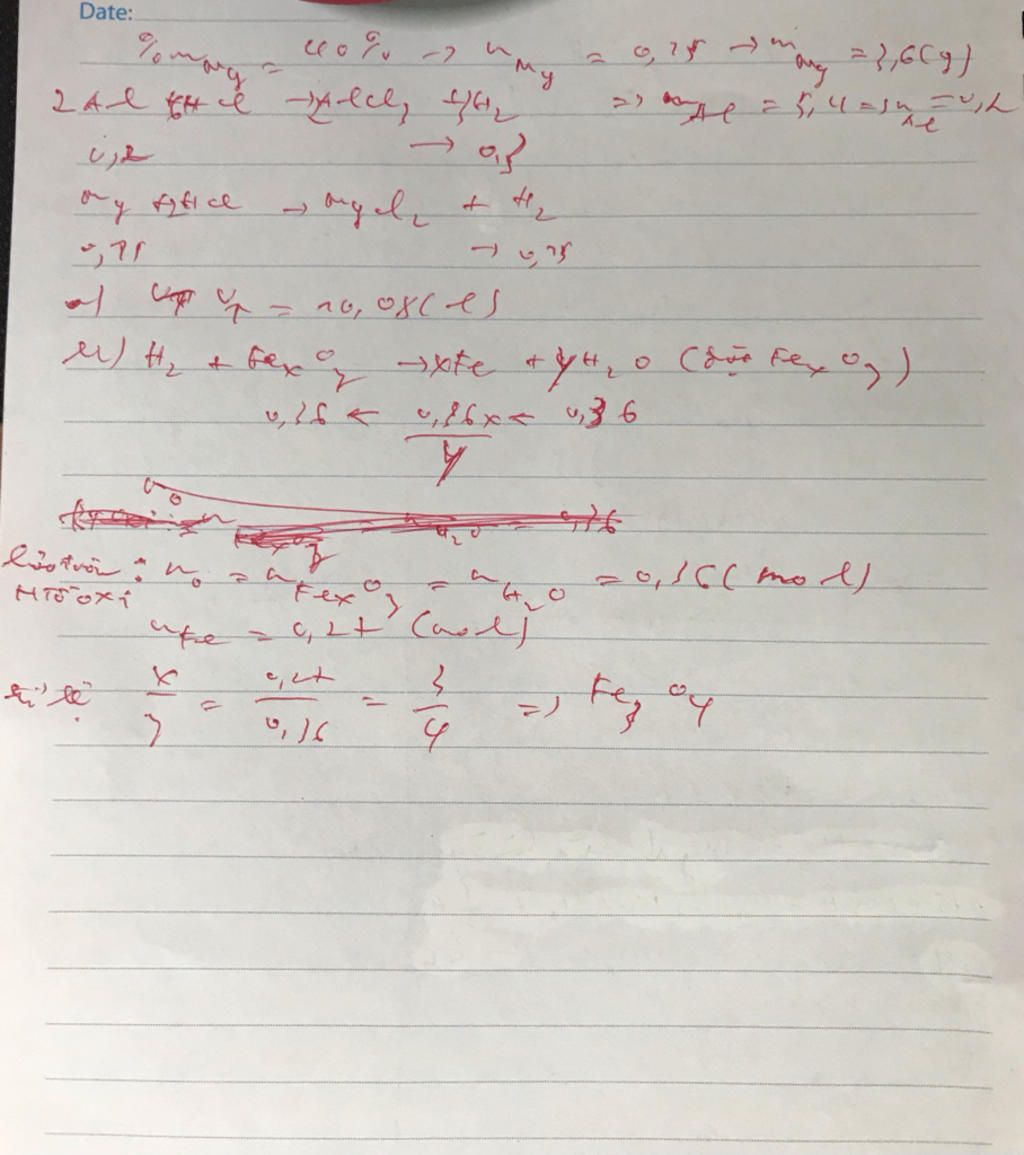 Date:
%mMg = 40% → nMg = 0,15 → mMg = 3,6(g)
2Al + 6HCl → 2AlCl3 + 3H2 => mAl = 5,4 => nAl = 0,2
0,2 → 0,3
Mg + 2HCl → MgCl2 + H2
0,15 → 0,15
a) V↑ = 10,08(l)
H2 + FexOy → xFe + yH2O ( FexOy)
0,36 ← 0,36x/y ← 0,36
nO
Bảo toàn : nO = nFexOy = nH2O = 0,36(mol)
NTố oxi
nFe = 0,27 (mol)
tỉ lệ x/y = 0,27/0,36 = 3/4 => Fe3O4